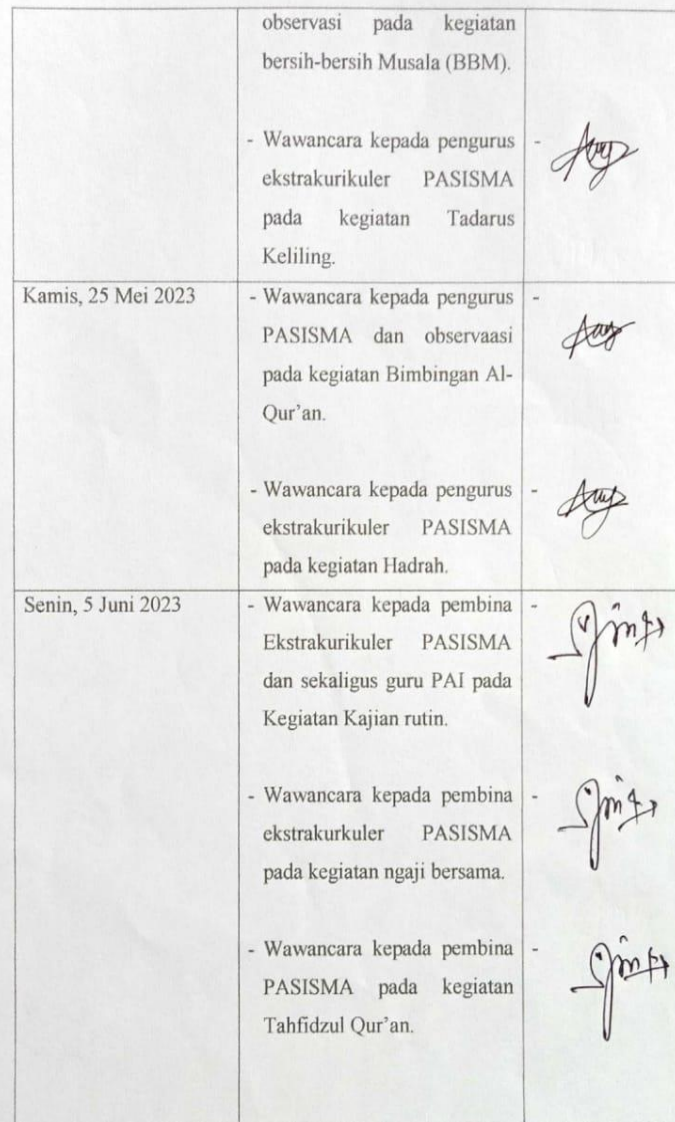 observasi pada kegiatan
bersih-bersih Musala (BBM).
- Wawancara kepada pengurus
ekstrakurikuler PASISMA
pada kegiatan Tadarus
Keliling.
-
Kamis, 25 Mei 2023
- Wawancara kepada pengurus
PASISMA dan observaasi
pada kegiatan Bimbingan Al-
Qur'an.
-
- Wawancara kepada pengurus
ekstrakurikuler PASISMA
pada kegiatan Hadrah.
-
Senin, 5 Juni 2023
- Wawancara kepada pembina
Ekstrakurikuler PASISMA
dan sekaligus guru PAI pada
Kegiatan Kajian rutin.
-
- Wawancara kepada pembina
ekstrakurkuler PASISMA
pada kegiatan ngaji bersama.
-
- Wawancara kepada pembina
PASISMA pada kegiatan
Tahfidzul Qur'an.
-